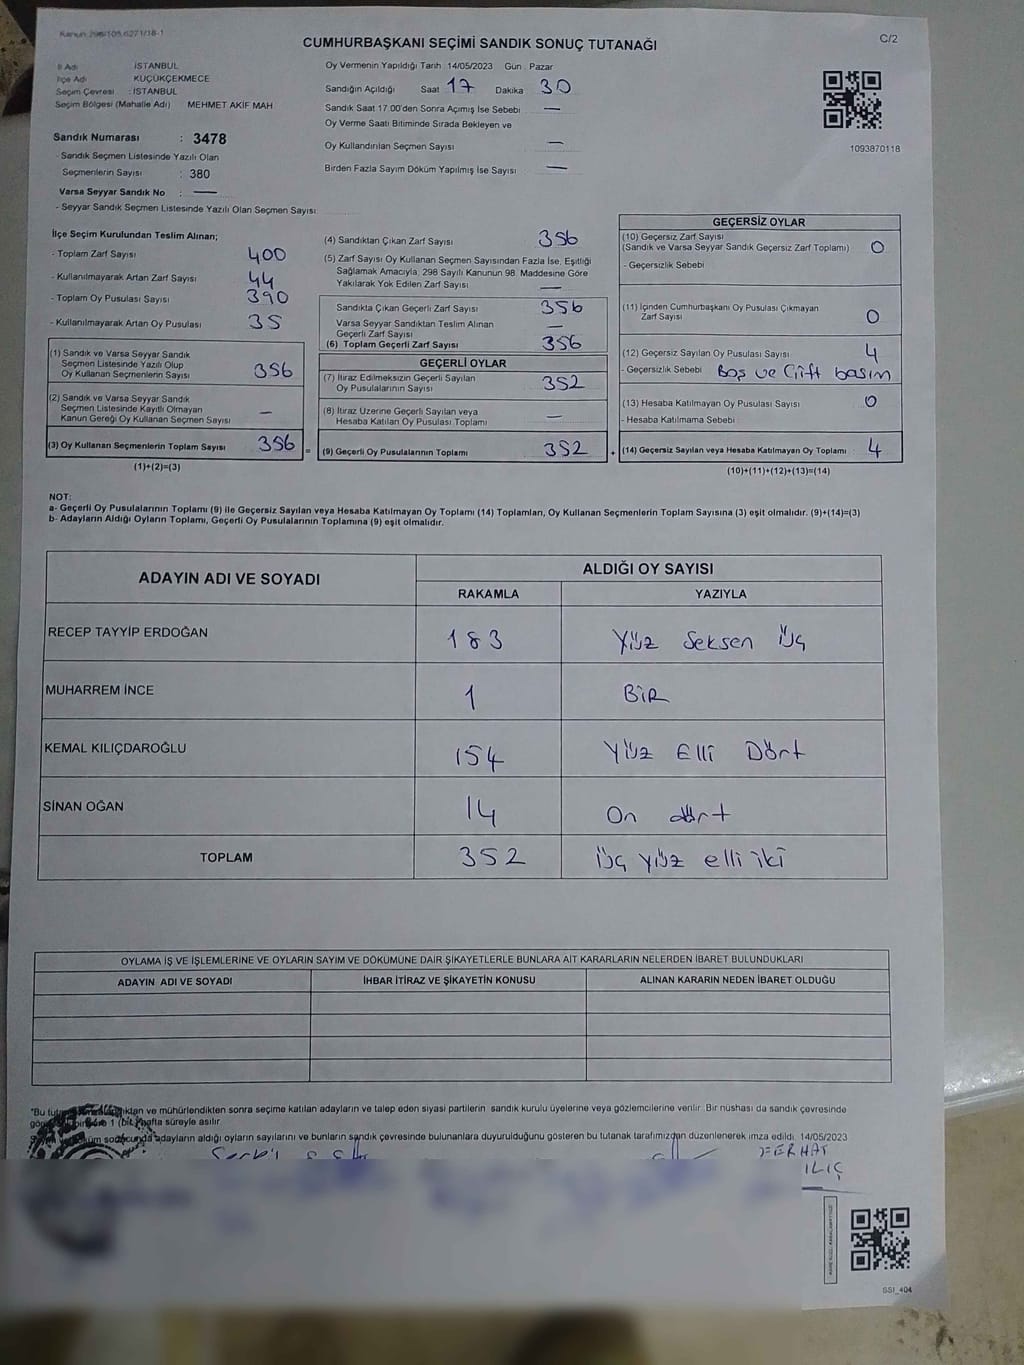 Kanun 298/105,6271/18-1
CUMHURBAŞKANI SEÇİMİ SANDIK SONUÇ TUTANAĞI
C/2
İl Adı : İSTANBUL
İlçe Adı : KÜÇÜKÇEKMECE
Seçim Çevresi : İSTANBUL
Seçim Bölgesi (Mahalle Adı) MEHMET AKİF MAH
Sandık Numarası : 3478
- Sandık Seçmen Listesinde Yazılı Olan
Seçmenlerin Sayısı : 380
Varsa Seyyar Sandık No : —
- Seyyar Sandık Seçmen Listesinde Yazılı Olan Seçmen Sayısı:
Oy Vermenin Yapıldığı Tarih 14/05/2023 Gün : Pazar
Sandığın Açıldığı Saat 17 Dakika 30
Sandık Saat 17:00'den Sonra Açımış İse Sebebi —
Oy Verme Saati Bitiminde Sırada Bekleyen ve
Oy Kullandırılan Seçmen Sayısı —
Birden Fazla Sayım Döküm Yapılmış İse Sayısı —
1093870118
İlçe Seçim Kurulundan Teslim Alınan;
- Toplam Zarf Sayısı 400
- Kullanılmayarak Artan Zarf Sayısı 44
- Toplam Oy Pusulası Sayısı 390
- Kullanılmayarak Artan Oy Pusulası 35
(1) Sandık ve Varsa Seyyar Sandık
Seçmen Listesinde Yazılı Olup
Oy Kullanan Seçmenlerin Sayısı 356
(2) Sandık ve Varsa Seyyar Sandık
Seçmen Listesinde Kayıtlı Olmayan
Kanun Gereği Oy Kullanan Seçmen Sayısı —
(3) Oy Kullanan Seçmenlerin Toplam Sayısı 356 =
(1)+(2)=(3)
(4) Sandıktan Çıkan Zarf Sayısı 356
(5) Zarf Sayısı Oy Kullanan Seçmen Sayısından Fazla İse, Eşitliği
Sağlamak Amacıyla, 298 Sayılı Kanunun 98. Maddesine Göre
Yakılarak Yok Edilen Zarf Sayısı —
Sandıkta Çıkan Geçerli Zarf Sayısı 356
Varsa Seyyar Sandıktan Teslim Alınan
Geçerli Zarf Sayısı —
(6) Toplam Geçerli Zarf Sayısı 356
GEÇERLİ OYLAR
(7) İtiraz Edilmeksizin Geçerli Sayılan
Oy Pusulalarının Sayısı 352
(8) İtiraz Üzerine Geçerli Sayılan veya
Hesaba Katılan Oy Pusulası Toplamı —
(9) Geçerli Oy Pusulalarının Toplamı 352 +
GEÇERSİZ OYLAR
(10) Geçersiz Zarf Sayısı
(Sandık ve Varsa Seyyar Sandık Geçersiz Zarf Toplamı) 0
- Geçersizlik Sebebi
(11) İçinden Cumhurbaşkanı Oy Pusulası Çıkmayan
Zarf Sayısı 0
(12) Geçersiz Sayılan Oy Pusulası Sayısı 4
- Geçersizlik Sebebi Boş ve Çift basım
(13) Hesaba Katılmayan Oy Pusulası Sayısı 0
- Hesaba Katılmama Sebebi
(14) Geçersiz Sayılan veya Hesaba Katılmayan Oy Toplamı 4
(10)+(11)+(12)+(13)=(14)
NOT:
a- Geçerli Oy Pusulalarının Toplamı (9) ile Geçersiz Sayılan veya Hesaba Katılmayan Oy Toplamı (14) Toplamları, Oy Kullanan Seçmenlerin Toplam Sayısına (3) eşit olmalıdır. (9)+(14)=(3)
b- Adayların Aldığı Oyların Toplamı, Geçerli Oy Pusulalarının Toplamına (9) eşit olmalıdır.
ADAYIN ADI VE SOYADI
ALDIĞI OY SAYISI
RAKAMLA YAZIYLA
RECEP TAYYİP ERDOĞAN 183 Yüz Seksen Üç
MUHARREM İNCE 1 BİR
KEMAL KILIÇDAROĞLU 154 Yüz Elli Dört
SİNAN OĞAN 14 On dört
TOPLAM 352 üç yüz elli iki
OYLAMA İŞ VE İŞLEMLERİNE VE OYLARIN SAYIM VE DÖKÜMÜNE DAİR ŞİKAYETLERLE BUNLARA AİT KARARLARIN NELERDEN İBARET BULUNDUKLARI
ADAYIN ADI VE SOYADI İHBAR İTİRAZ VE ŞİKAYETİN KONUSU ALINAN KARARIN NEDEN İBARET OLDUĞU
"Bu ve mühürlendikten sonra seçime katılan adayların ve talep eden siyasi partilerin sandık kurulu üyelerine veya gözlemcilerine verilir. Bir nüshası da sandık çevresinde
1 (bir) hafta süreyle asılır.
sonucunda adayların aldığı oyların sayılarını ve bunların sandık çevresinde bulunanlara duyurulduğunu gösteren bu tutanak tarafımızdan düzenlenerek imza edildi. 14/05/2023
FERHAT
SSI_404